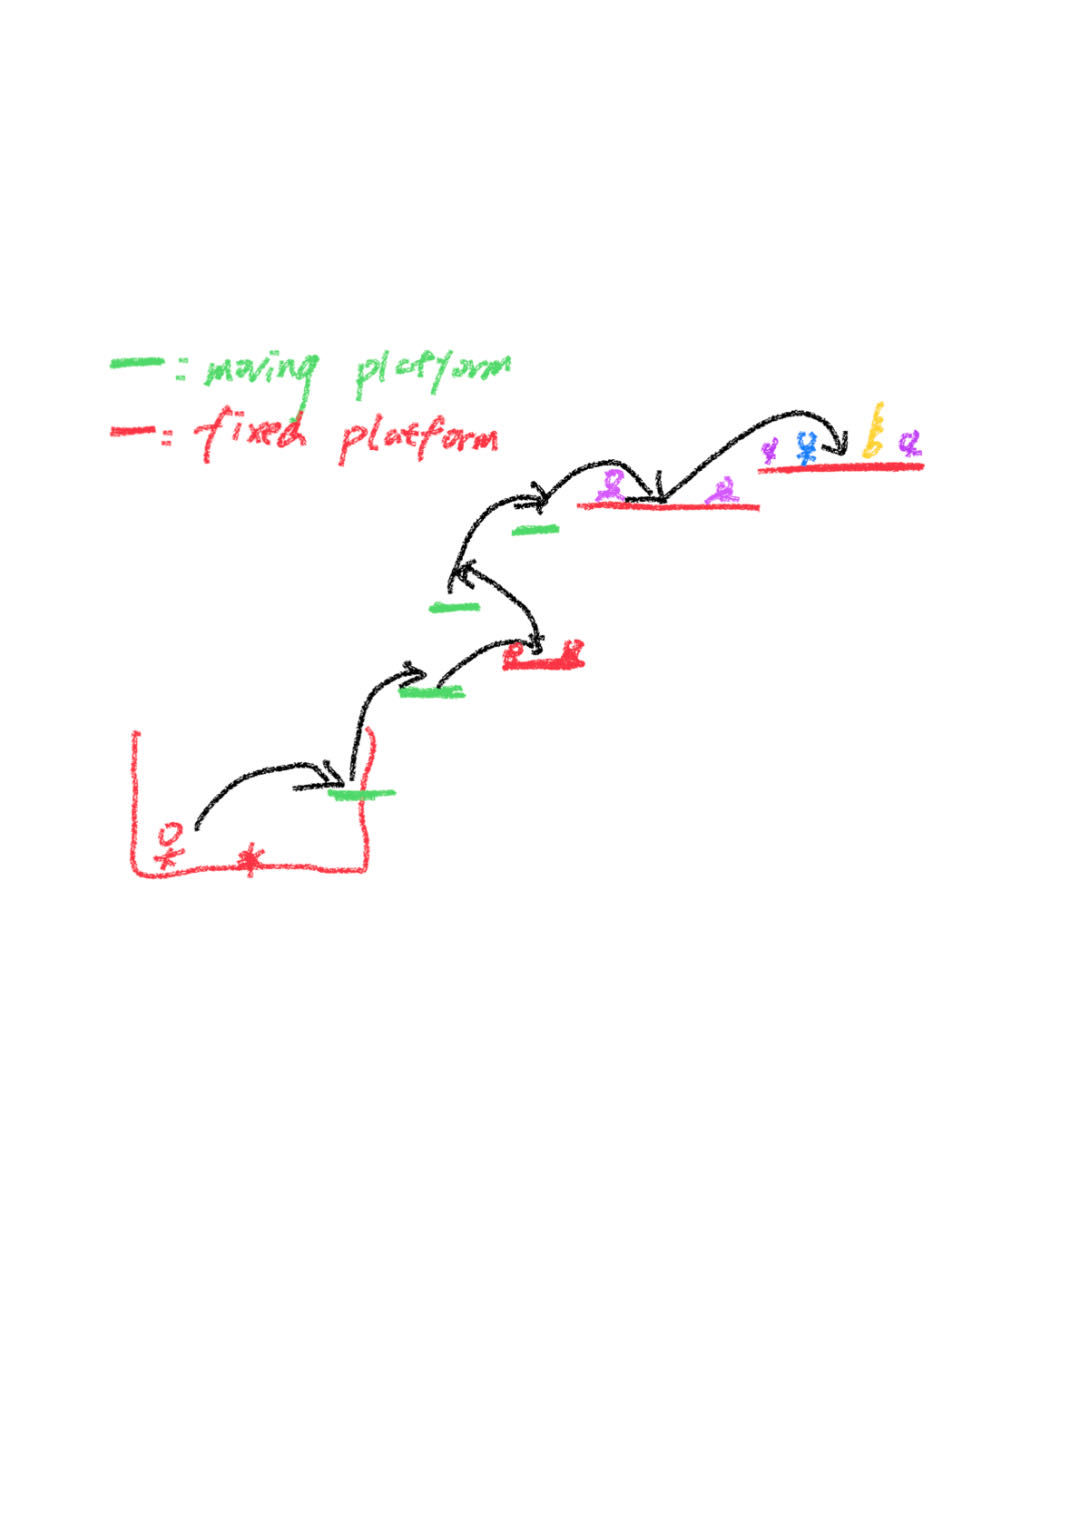 : moving platform
: fixed platform